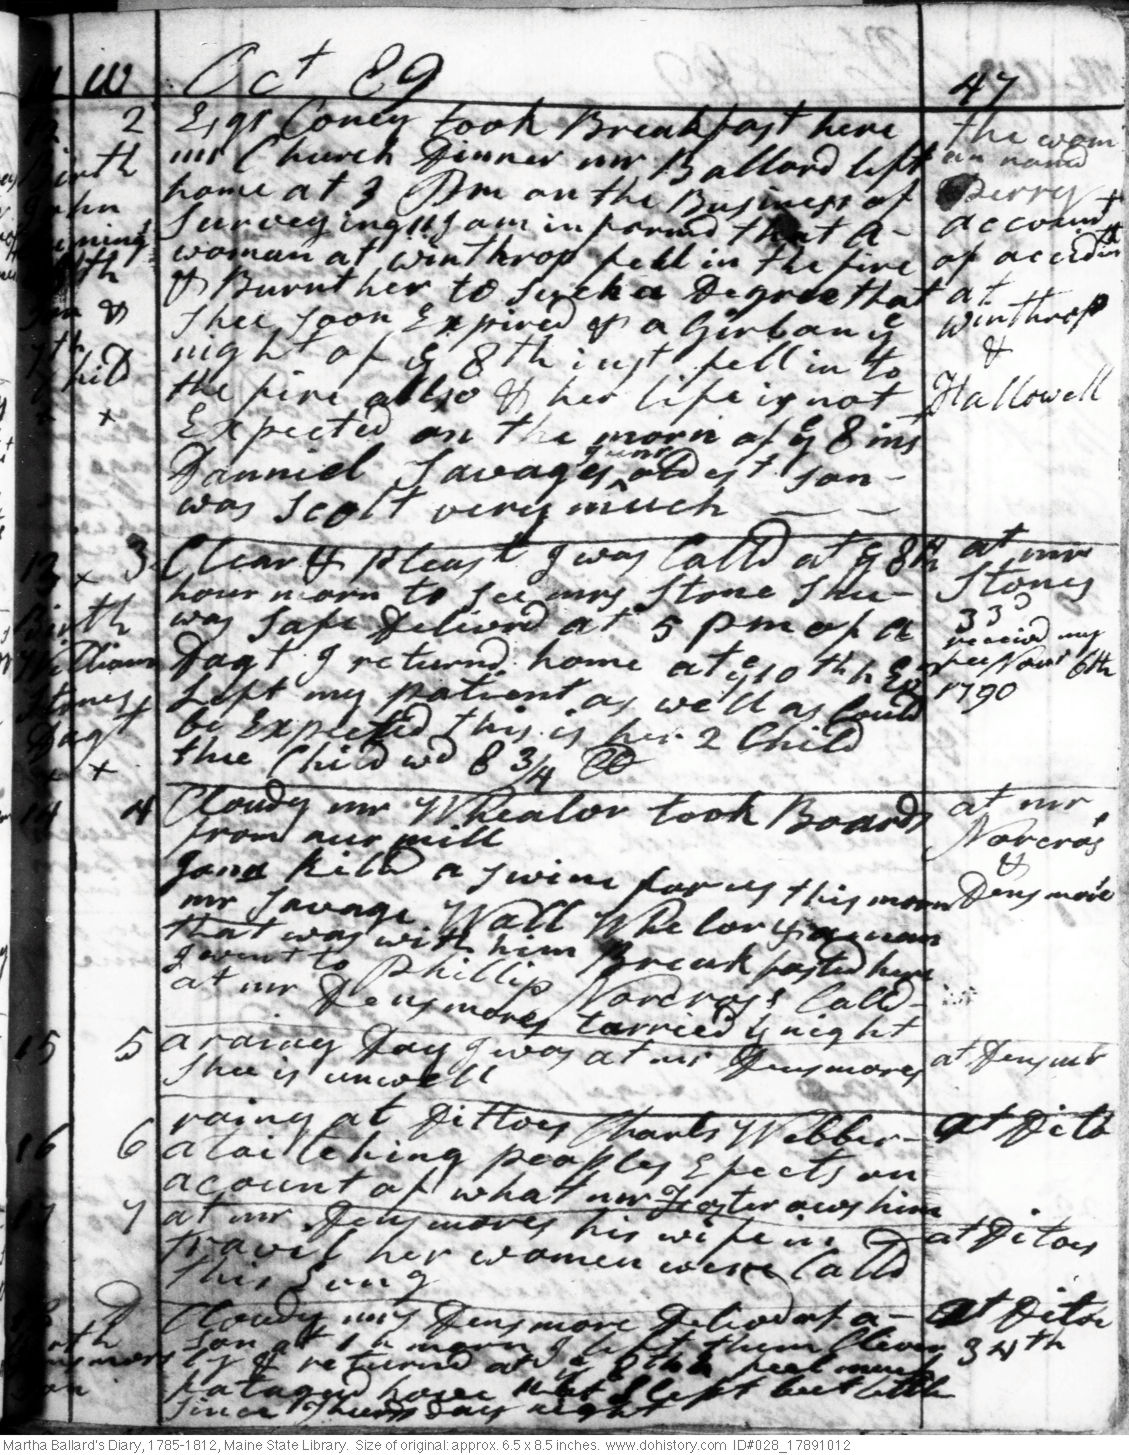 W Oct 89 47
2 Esqr Coney took Breakfast here
mr Church Dinner mr Ballard left
home at 3 Pm on the Business of
Surveying. I am informd that a
woman at Winthrop fell in the fire
& Burnt her to such a Degree that
shee soon Expired & a Girl on ye
night of ye 8th inst fell in to
the fire allso & her life is not
Expected on the morn of ye 8 ins
Danniel Savages junr oldest son
was scolt very much
the wom
an namd
Perry
account
of accedin
at
Winthrop
&
Hallowell
Birth
John
7th
Child
x
13 x 3 Clear & pleast I was Calld at ye 8th
hour morn to see mrs Stone Shee
was safe Deliverd at 5 pm of a
Dagt I returnd home at ye 10th h Evn
left my patient as well as Could
be Expected this is her 2 Child
thee Child wd 8 3/4 lb
at mr
Stones
33d
receivd my
fee Novr 6th
1790
Birth
William
Stones
Dagt
x x
14 4 Cloudy mr Whealor took Boards
from our mill
Jona killd a swine for us this morn
mr Savage Wall Whelor & a man
that was with him Breakfasted here
I went to Phillip Norcross Calld
at mr Densmores tarried ye night
at mr
Norcros
&
Densmore
15 5 a rainy Day I was at mr Densmores
Shee is unwell
at Densmr
16 6 rainy at Dittoes Charls Webber
ataitching peoples Efects on
acount of what mr Foster ows him
at Dito
17 7 at mr Densmores his wife in
travil her women were Calld
this Evng
at Ditoes
D Cloudy mrs Densmore Deliverd of a
son at 1 h morn I left them Clever
ly & returnd at ye 8th h feel much
fatagud have not slept but little
since Thursday night
at Ditoe
34th
Martha Ballard's Diary, 1785-1812, Maine State Library. Size of original: approx. 6.5 x 8.5 inches. www.dohistory.com ID#028_17891012